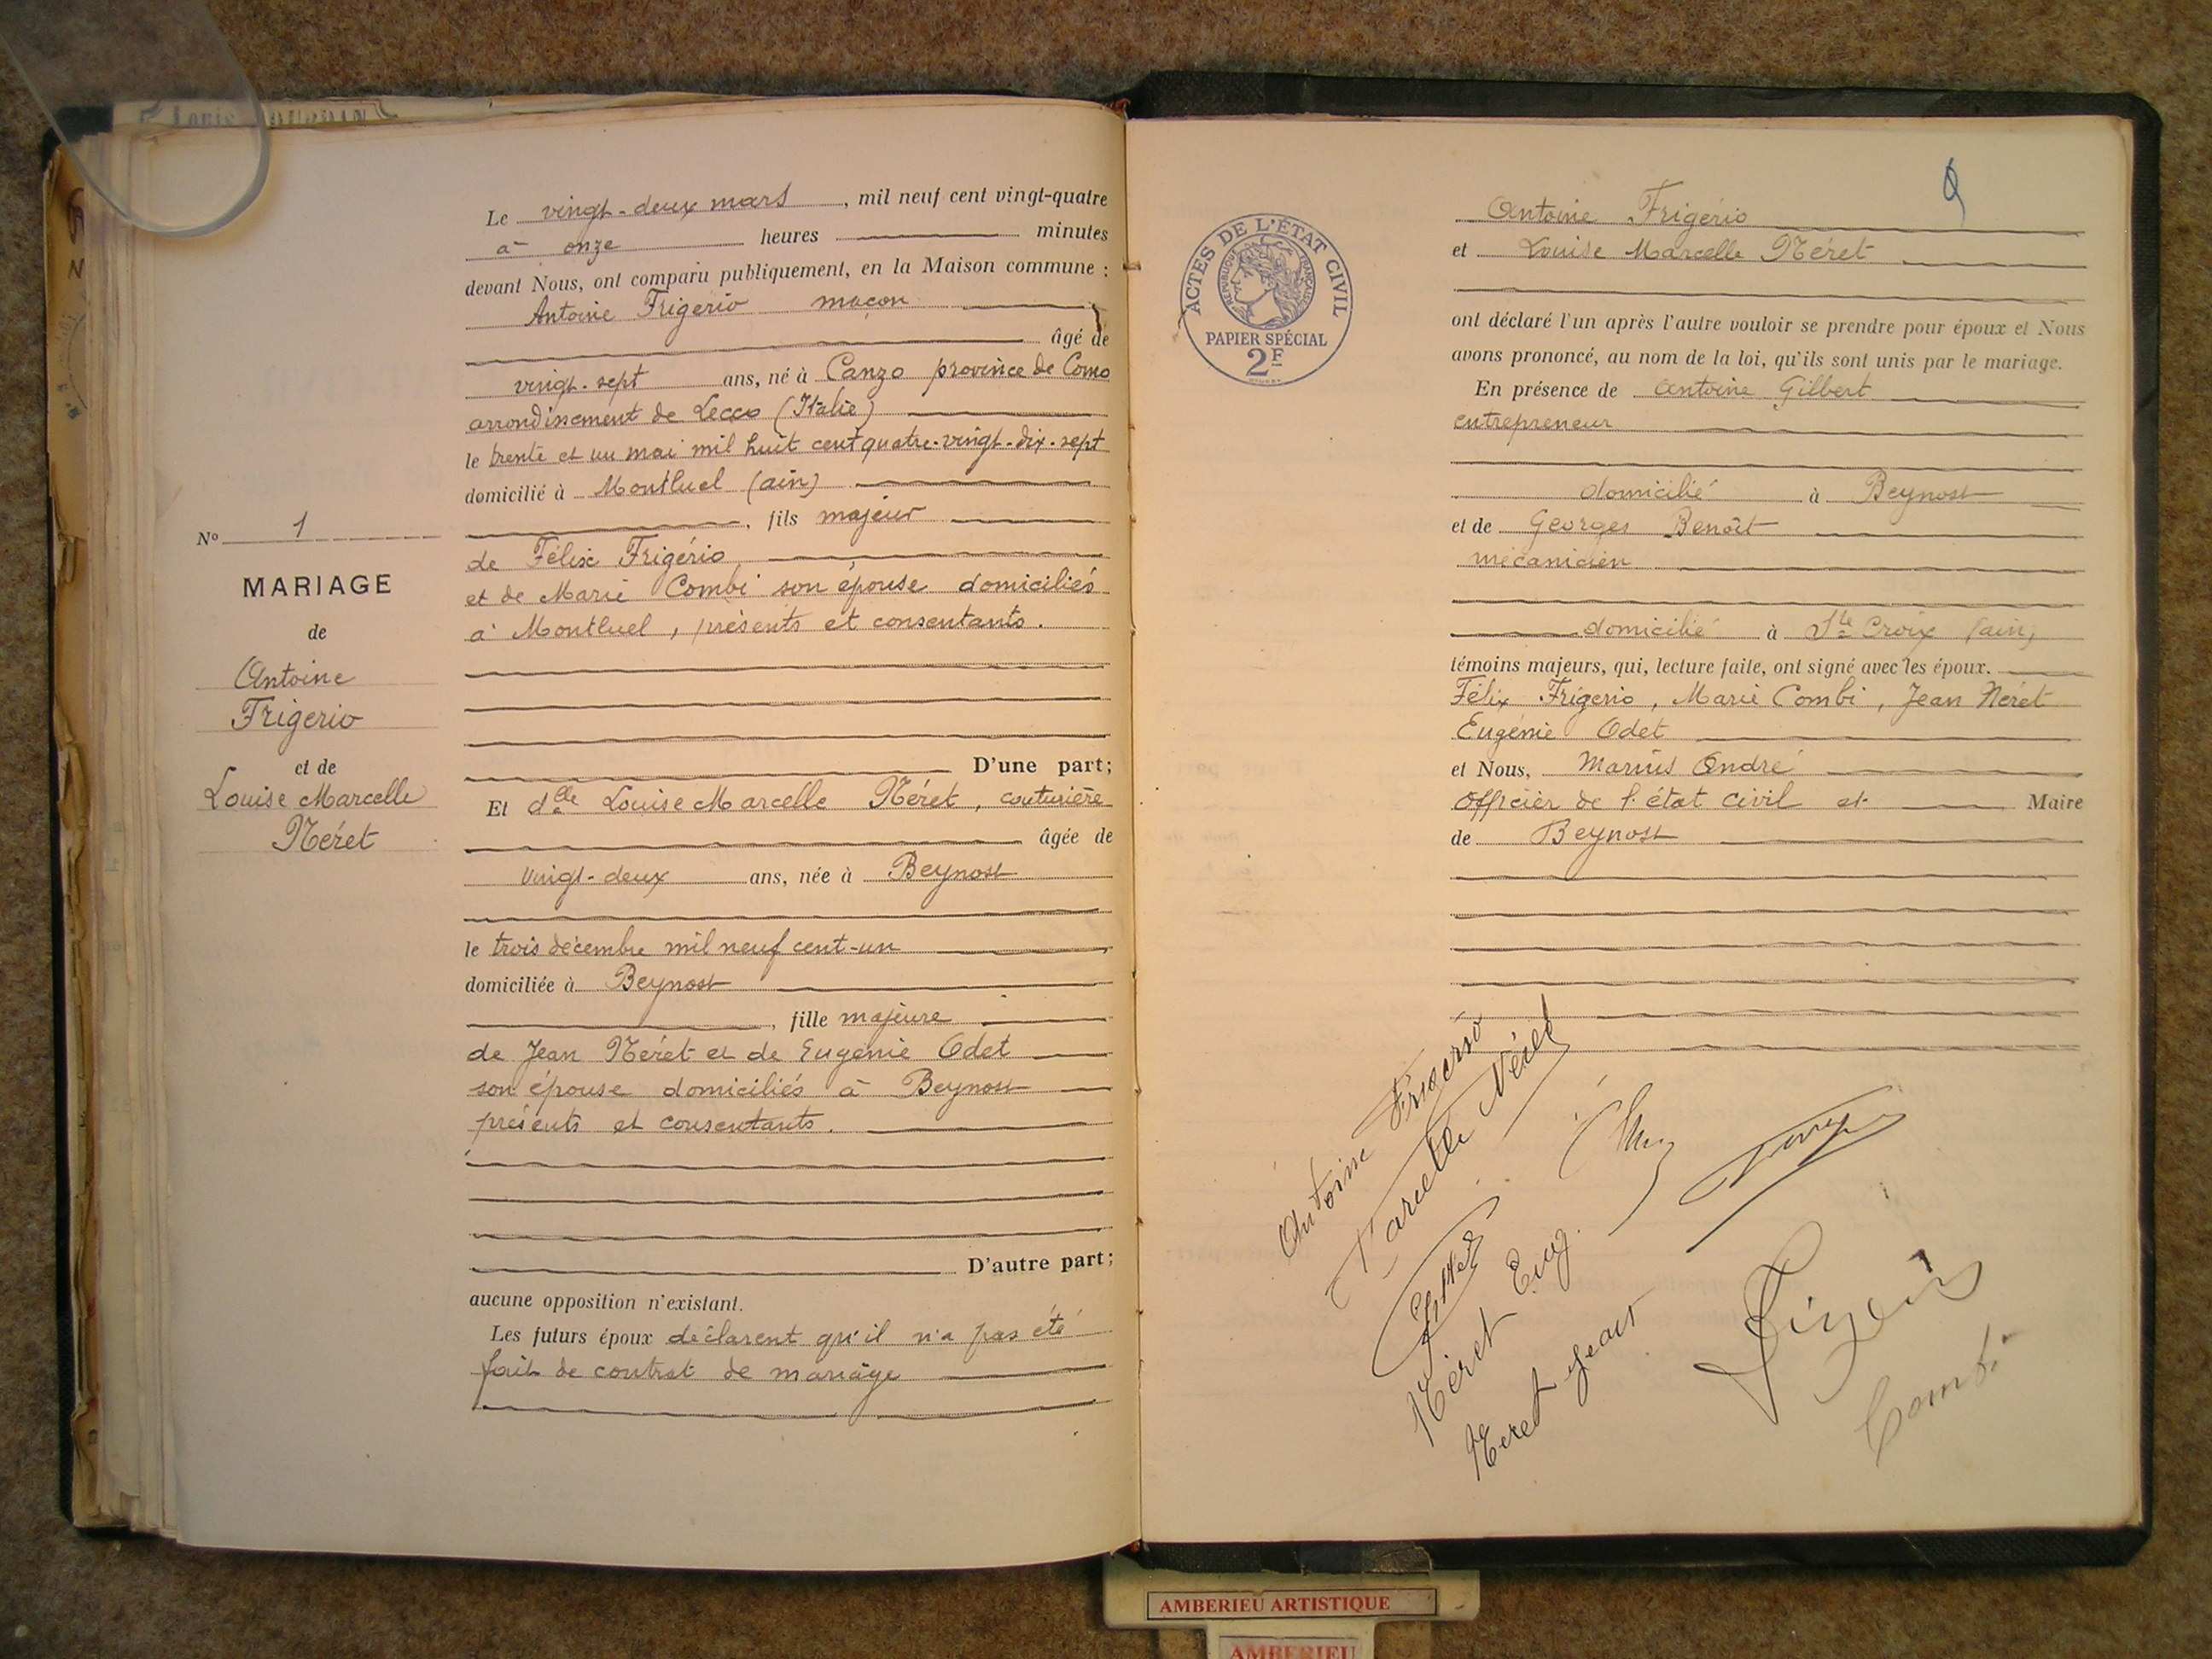 Le vingt-deux mars, mil neuf cent vingt-quatre
à onze heures minutes
devant Nous, ont comparu publiquement, en la Maison commune :
Antoine Frigerio maçon
âgé de
vingt-sept ans, né à Canzo province de Como
arrondissement de Lecco (Italie)
le trente et un mai mil huit cent quatre-vingt-dix-sept
domicilié à Montluel (ain)
, fils majeur
de Félix Frigério
et de Marie Combi son épouse domiciliés
à Montluel, présents et consentants.
D'une part;
Et delle Louise Marcelle Néret, couturière
âgée de
vingt-deux ans, née à Beynost
le trois décembre mil neuf cent-un
domiciliée à Beynost
, fille majeure
de Jean Néret et de Eugénie Odet
son épouse domiciliés à Beynost
présents et consentants.
D'autre part;
aucune opposition n'existant.
Les futurs époux déclarent qu'il n'a pas été
fait de contrat de mariage
No 1
MARIAGE
de
Antoine
Frigerio
et de
Louise Marcelle
Néret
9
ACTES DE L'ÉTAT CIVIL
RÉPUBLIQUE FRANÇAISE
PAPIER SPÉCIAL
2F
Antoine Frigério
et Louise Marcelle Néret
ont déclaré l'un après l'autre vouloir se prendre pour époux et Nous
avons prononcé, au nom de la loi, qu'ils sont unis par le mariage.
En présence de Antoine Gilbert
entrepreneur
domicilié à Beynost
et de Georges Benoît
mécanicien
domicilié à Ste Croix (ain)
témoins majeurs, qui, lecture faite, ont signé avec les époux.
Félix Frigerio, Marie Combi, Jean Néret
Eugénie Odet
et Nous, Marius André
officier de l'état civil et Maire
de Beynost
Antoine Frigerio
Marcelle Néret
Néret Eug.
Neret Jean
Combi
AMBERIEU ARTISTIQUE
AMBERIEU